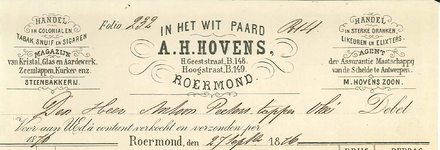 HANDEL
IN COLONIALEN,
TABAK, SNUIF EN SIGAREN
MAGAZIJN
van Kristal, Glas en Aardewerk.
Zeemlappen, Kurken enz.
STEENBAKKERIJ.
Folio 232
IN HET WIT PAARD
A.H. HOVENS,
H. Geeststraat, B. 148.
Hoogstraat, B. 149.
ROERMOND.
HANDEL
IN STERKE DRANKEN
LIKEUREN EN ELIXTERS.
AGENT
der Assurantie Maatschappij
van de Schelde te Antwerpen.
M. HOVENS ZOON.
Den Heer Anthon Peeters
Voor aan UEd. à contant verkocht en verzonden per
1876 Roermond, den 27 Sept 1876